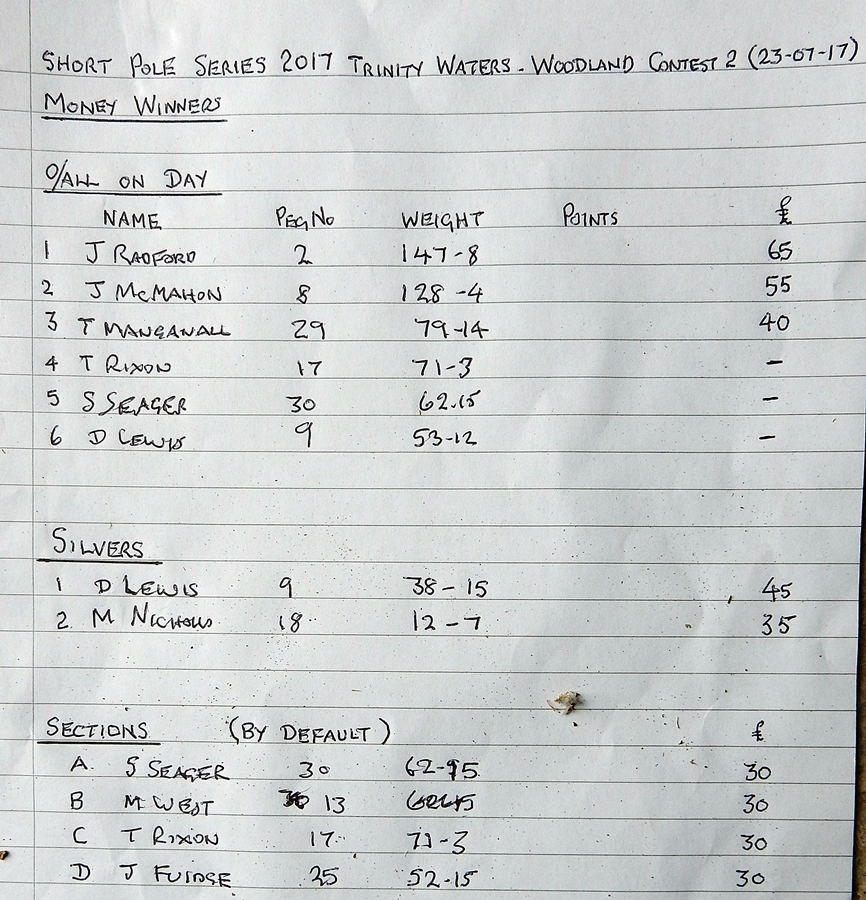 SHORT POLE SERIES 2017 TRINITY WATERS - WOODLAND CONTEST 2 (23-07-17)
MONEY WINNERS
O/ALL ON DAY
NAME PEG NO WEIGHT POINTS £
1 J RADFORD 2 147-8 65
2 J McMAHON 8 128-4 55
3 T MANGANALL 29 79-14 40
4 T RIXON 17 71-3 -
5 S SEAGER 30 62.15 -
6 D LEWIS 9 53-12 -
SILVERS
1 D LEWIS 9 38-15 45
2. M NICHOLLS 18 12-7 35
SECTIONS (BY DEFAULT) £
A. S SEAGER 30 62-15 30
B M WEST 13 30
C T RIXON 17 71-3 30
D J FUDGE 25 52-15 30